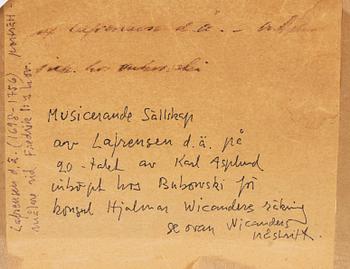 av Lafrensen d.ä. –
Musicerande Sällskap
av Lafrensen d.ä. på
20-talet av Karl Asplund
inköpt hos Bukowski för
konsul Hjalmar Wicanders räkning
se ovan Wicanders
påskrift.
Lafrensen d.ä. (1698–1756)
målare vid Fredrik I:s hov.